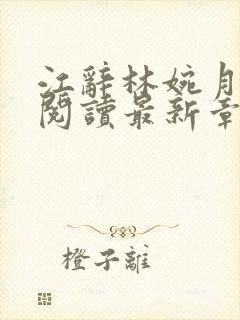 江辭林婉月
閱讀最新章
橙子離